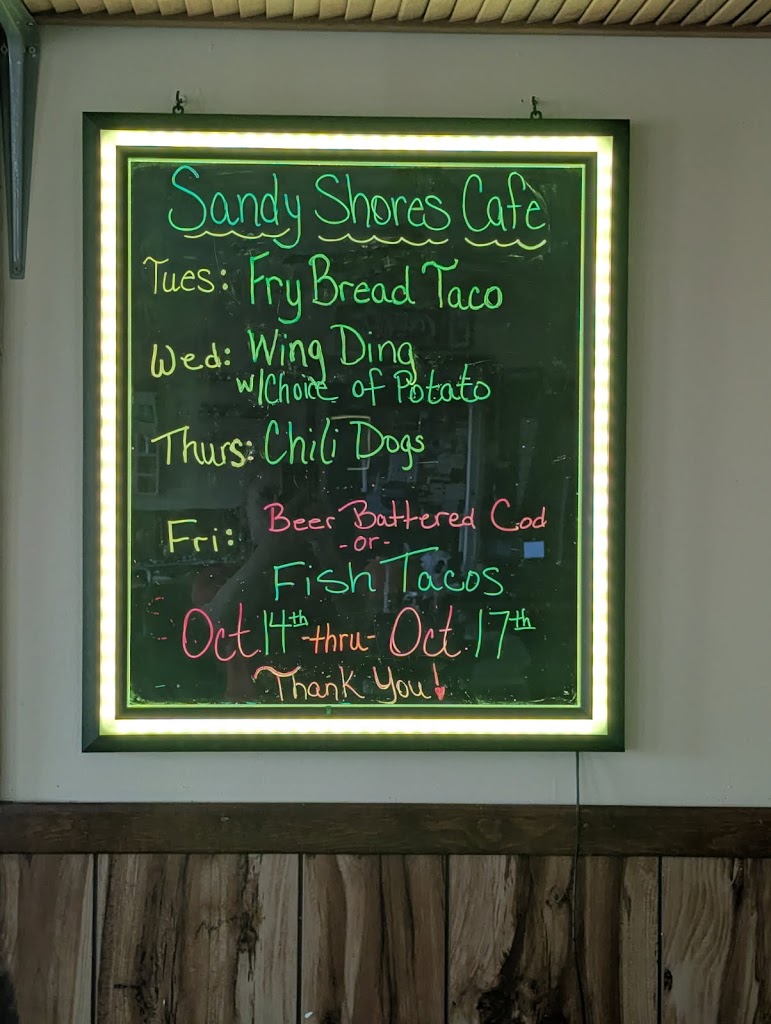 Sandy Shores Cafe
Tues: Fry Bread Taco
Wed: Wing Ding
w/Choice of Potato
Thurs: Chili Dogs
Fri: Beer Battered Cod
-or-
Fish Tacos
Oct 14th -thru- Oct. 17th
Thank You!